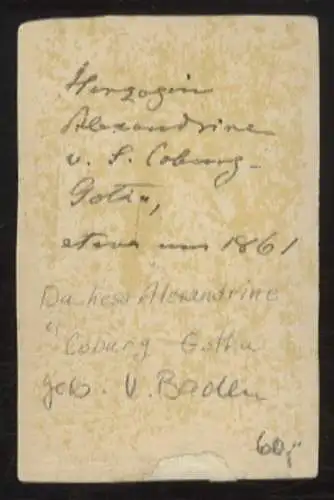 Herzogin
Alexandrine
v. S. Coburg-
Gotha,
etwa um 1861
Duchess Alexandrine
Coburg Gotha
geb. v. Baden
60,-